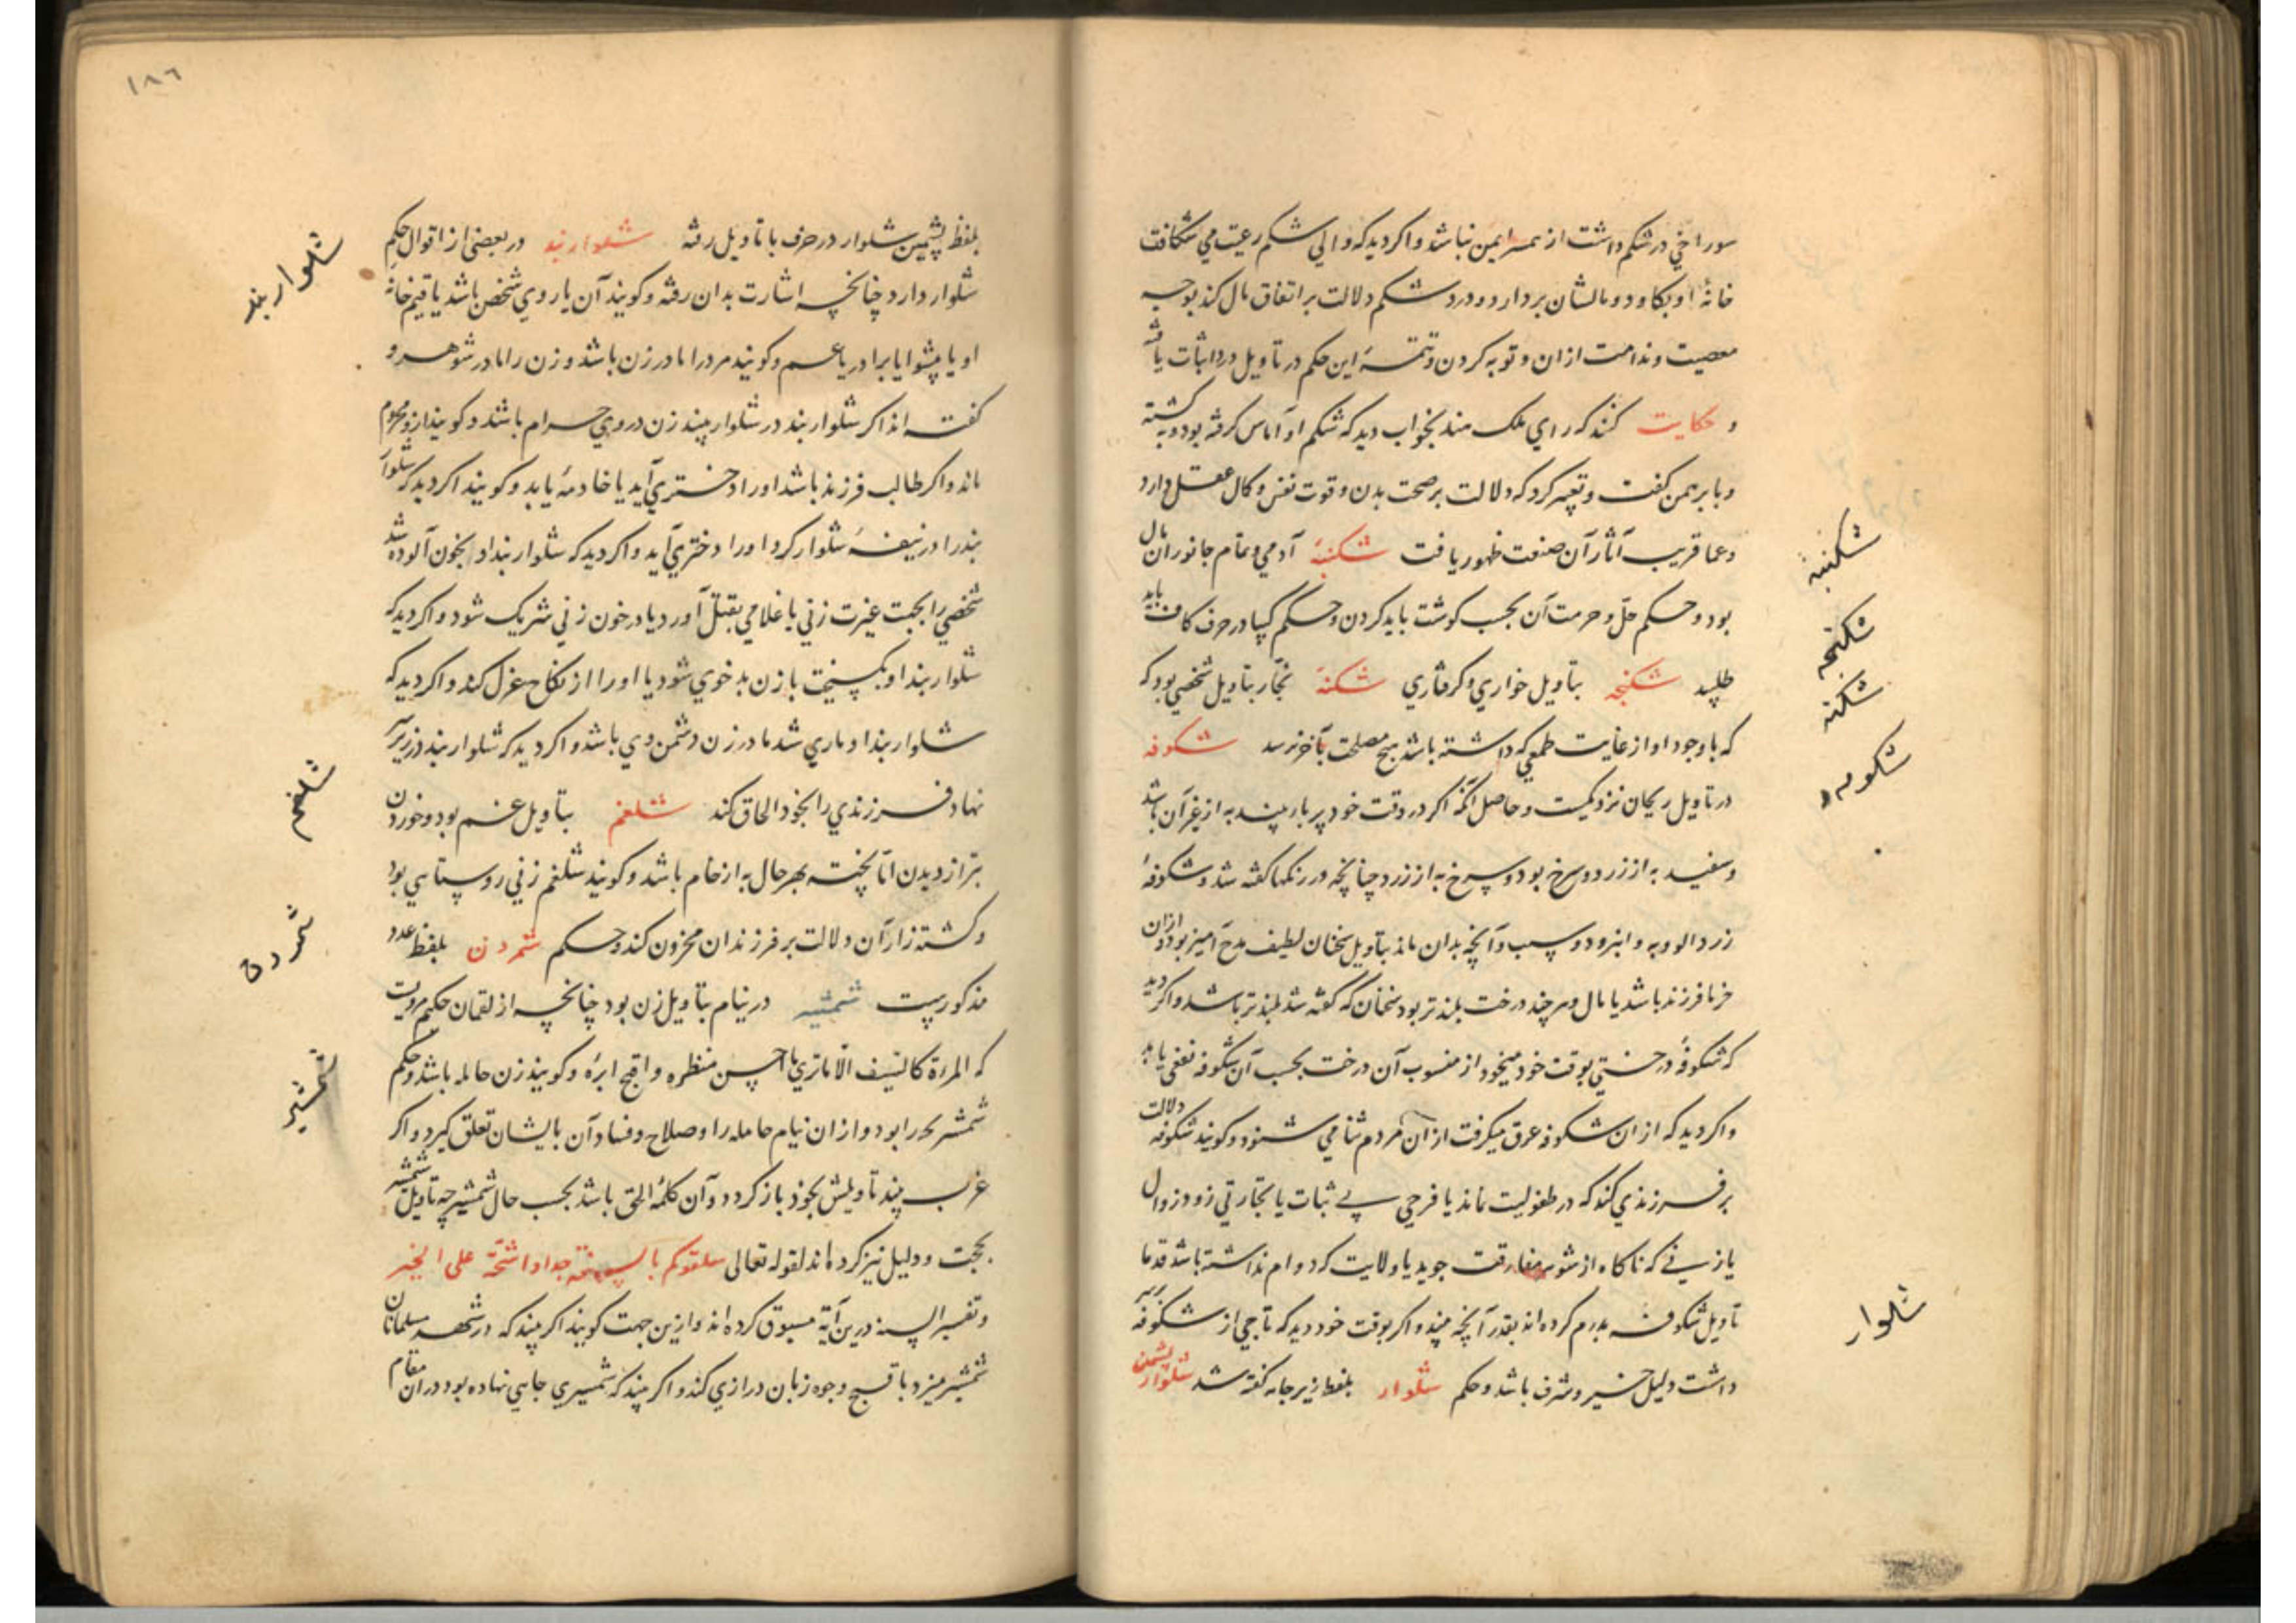 سوراخی در شکم داشت از همسر ایمن نباشد و اکر دید که والی شکم رعیت می شکافت
خانهٔ او بکاود و مالشان بردارد و درد شکم دلالت بر اتفاق مال کند بوجه
معصیت و ندامت ازان و توبه کردن و تتمهٔ این حکم در تاویل درد اثبات یافته
و حکایت کنند که رای ملک هند بخواب دید که شکم او آماس کرفته بود و به کشته
و با برهمن کفت و تعبیر کرد که دلالت بر صحت بدن و قوت نفس و کمال عقل دارد
و عما قریب آثار آن صفت ظهور یافت شکنبه آدمی و تمام جانوران مال
بود و حکم حل و حرمت آن بحسب کوشت باید کردن و حکم کیپا در حرف کاف باید
طلبید شکنجه بتاویل خواری و کرفتاری شکنه نجار بتاویل شخصی بود که
که با وجود او از غایت طمعی که داشته باشد هیچ مصلحت بآخر نرسد شکوفه
در تاویل ریحان نزدیکست و حاصل آنکه اکر در وقت خود پر بار بیند به از غیر آن باشد
و سفید به از زرد و سرخ بود و سرخ به از زرد چنانچه در رنکها کفته شد و شکوفهٔ
زردالو و به و انبرود و سیب و آنچه بدان ماند بتاویل سخنان لطیف مدح آمیز بود و ازان
خرما فرزند باشد یا مال و هر چند درخت بلندتر بود سخنان که کفته شد بلندتر باشد و اکر دید
که شکوفهٔ درختی بوقت خود میخورد از منسوب آن درخت بحسب آن شکوفه نفعی یابد
و اکر دید که ازان شکوفه عرق میکرفت ازان مردم ثنا می شنود و کویند شکوفه دلالت
بر فرزندی کند که در طفولیت نماند یا فرحی بی ثبات یا تجارتی زود زوال
یا زنی که ناکاه از شوهر مفارقت جوید یا ولایت که دوام نداشته باشد قدما
تاویل شکوفه بدرم کرده اند بقدر آنچه بیند و اکر بوقت خود دید که تاجی از شکوفه بر سر
داشت دلیل خیر و شرف باشد و حکم شلوار بلفظ زیرجامه کفته شد شلوار پشمین
شکنبه
شکنجه
شکنه
شکوفه
شلوار
١٨٦
بلفظ پشمین شلوار در حرف با تاویل رفته شلواربند در بعضی از اقوال حکم
شلوار دارد چنانچه اشارت بدان رفته و کویند آن یا روی شخص باشد یا قیم خانه
او یا پیشوا یا برادر یا عم و کویند مرد را مادر زن باشد و زن را مادر شوهر و
کفته اند اکر شلواربند در شلوار بیند زن در وی حرام باشد و کویند ازو محروم
ماند و اکر طالب فرزند باشد او را دختری آید یا خادمهٔ یابد و کویند اکر دید که شلوار
بند را در نیفهٔ شلوار کرد او را دختری آید و اکر دید که شلواربند او بخون آلوده شد
شخصی را بجهت غیرت زنی یا غلامی بقتل آورد یا در خون زنی شریک شود و اکر دید که
شلواربند او بکسیخت با زن بدخوی شود یا او را از نکاح عزل کند و اکر دید که
شلواربند او ماری شد مادر زن دشمن وی باشد و اکر دید که شلواربند در زیر سر
نهاد فرزندی را بخود الحاق کند شلغم بتاویل غم بود و خوردن
بتر از دیدن اما پخته بهر حال به از خام باشد و کویند شلغم زنی روستایی بود
و کشته زار آن دلالت بر فرزندان محزون کند و حکم شمردن بلفظ عدد
مذکورست شمشیر در نیام بتاویل زن بود چنانچه از لقمان حکیم مرویت
که المرءة کالسیف الا ما تری ما احسن منظره و اقبح اثره و کویند زن حامله باشد و حکم
شمشیر مر را بود و ازان نیام حامله را و صلاح و فساد آن بایشان تعلق کیرد و اکر
عزب بیند تاویلش بخود باز کردد و آن کلمهٔ الحق باشد بحسب حال شمشیر چه تاویل شمشیر
بحجت و دلیل نیز کرده اند لقوله تعالی سلقوکم بالسنة حداد اشحة علی الخیر
و تفسیر السنه درین آیة مسبوق کرده اند و ازین جهت کویند اکر بیند که در شهر مسلمانان
شمشیر میزد باقبح وجوه زبان درازی کند و اکر بیند که شمشیری جایی نهاده بود دران مقام
شلواربند
شلغم
شمردن
شمشیر